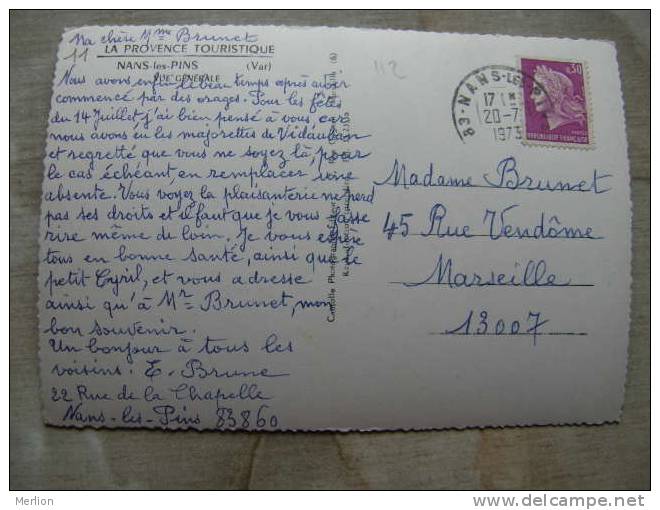 Ma chère Mme Brunet
11 LA PROVENCE TOURISTIQUE
NANS-les-PINS (Var)
VUE GÉNÉRALE
Nous avons enfin le beau temps après avoir
commencé par des orages. Pour les fêtes
du 14 Juillet j'ai bien pensé à vous, car
nous avons eu les majorettes de Vidauban
et regretté que vous ne soyez là, pour
le cas échéant en remplacer une
absente. Vous voyez la plaisanterie ne perd
pas ses droits et il faut que je vous fasse
rire même de loin. Je vous espère
tous en bonne santé, ainsi que le
petit Cyril, et vous adresse
ainsi qu'à Mr Brunet, mon
bon souvenir.
Un bonjour à tous les
voisins. E. Brune
22 Rue de la Chapelle
Nans-les-Pins 83860
112
83-NANS-LES-P
17 H
20-7
1973
0,30
REPUBLIQUE FRANÇAISE
Madame Brunet
45 Rue Vendôme
Marseille
13007
Merlion
delcampe.net